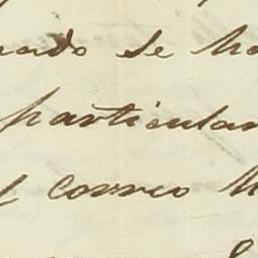 nado se ha
particular
l correo